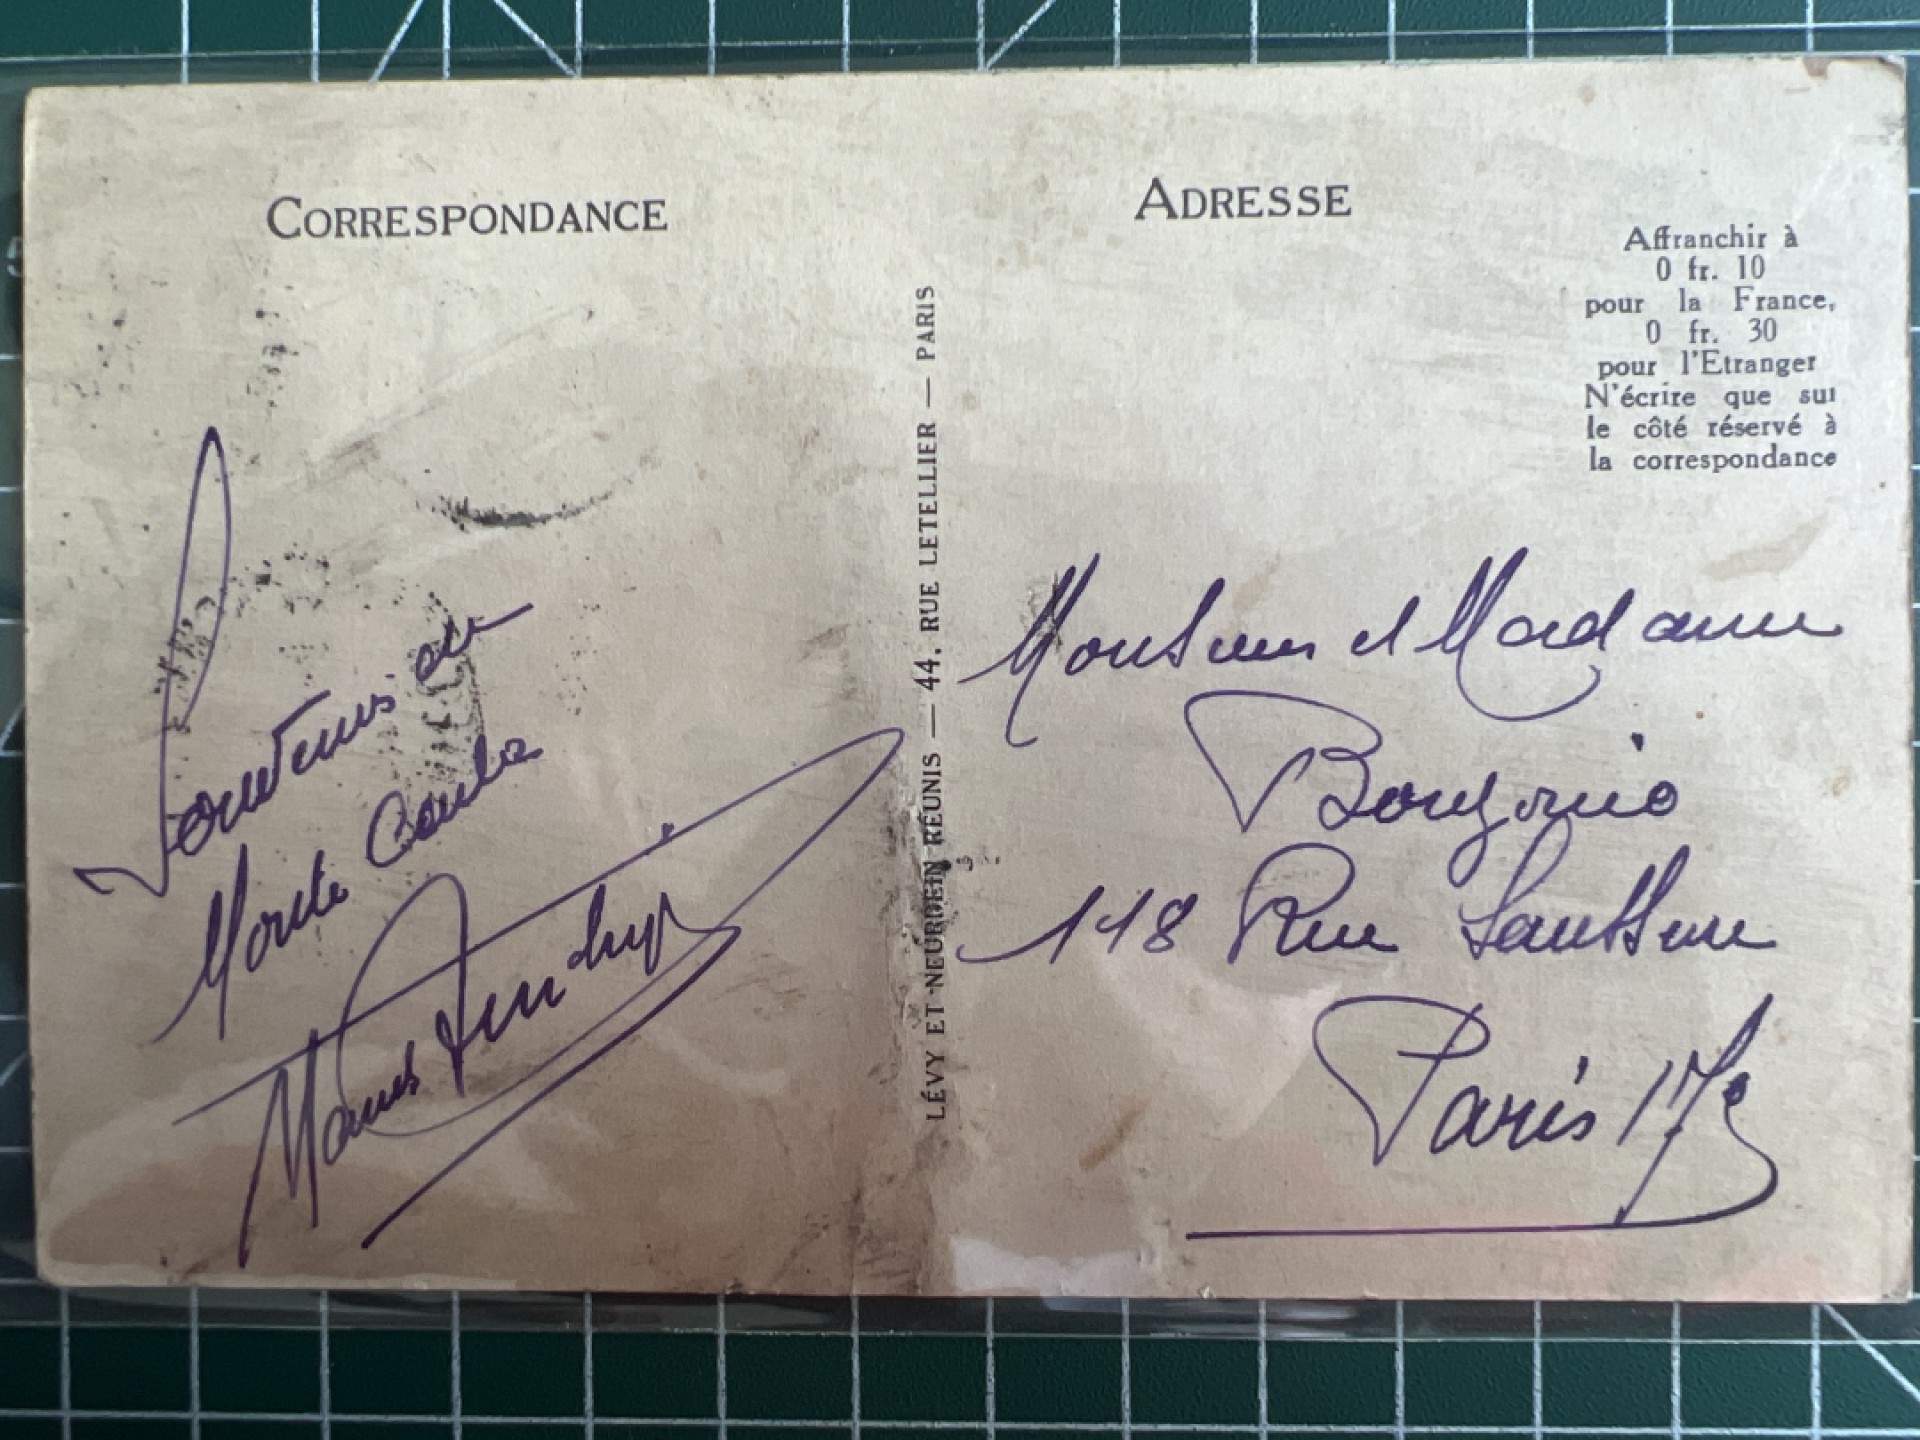 CORRESPONDANCE
Souvenir de
Monte Carlo
ADRESSE
Affranchir à
0 fr. 10
pour la France,
0 fr. 30
pour l'Etranger
N'écrire que sur
le côté réservé à
la correspondance
LÉVY ET NEURDEIN RÉUNIS — 44, RUE LETELLIER — PARIS
Monsieur et Madame
118 Rue
Paris 17e